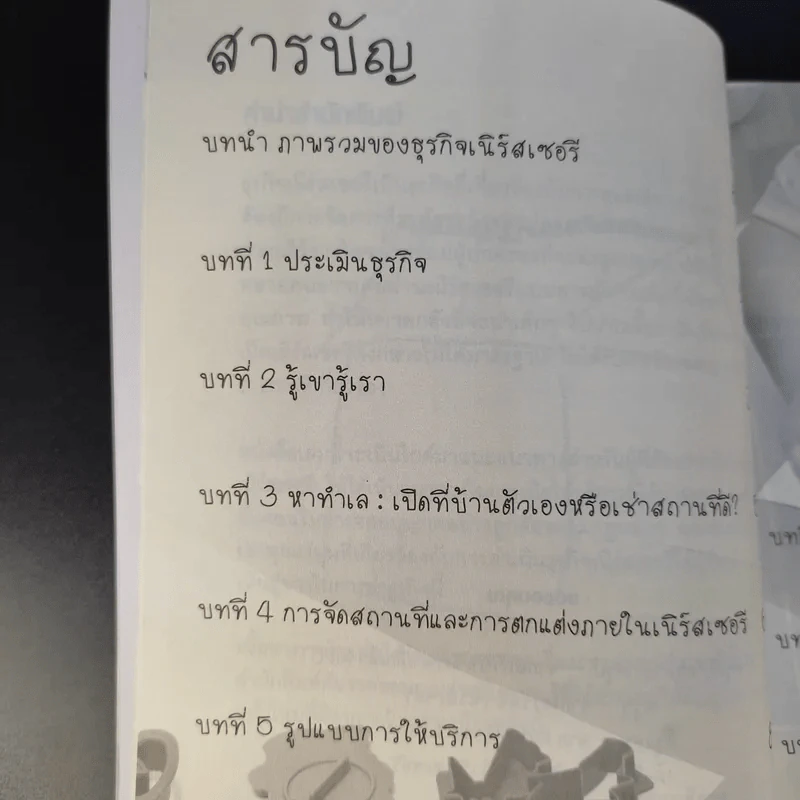 สารบัญ
บทนำ ภาพรวมของธุรกิจเนิร์สเซอรี
บทที่ 1 ประเมินธุรกิจ
บทที่ 2 รู้เขารู้เรา
บทที่ 3 หาทำเล : เปิดที่บ้านตัวเองหรือเช่าสถานที่ดี?
บทที่ 4 การจัดสถานที่และการตกแต่งภายในเนิร์สเซอรี
บทที่ 5 รูปแบบการให้บริการ